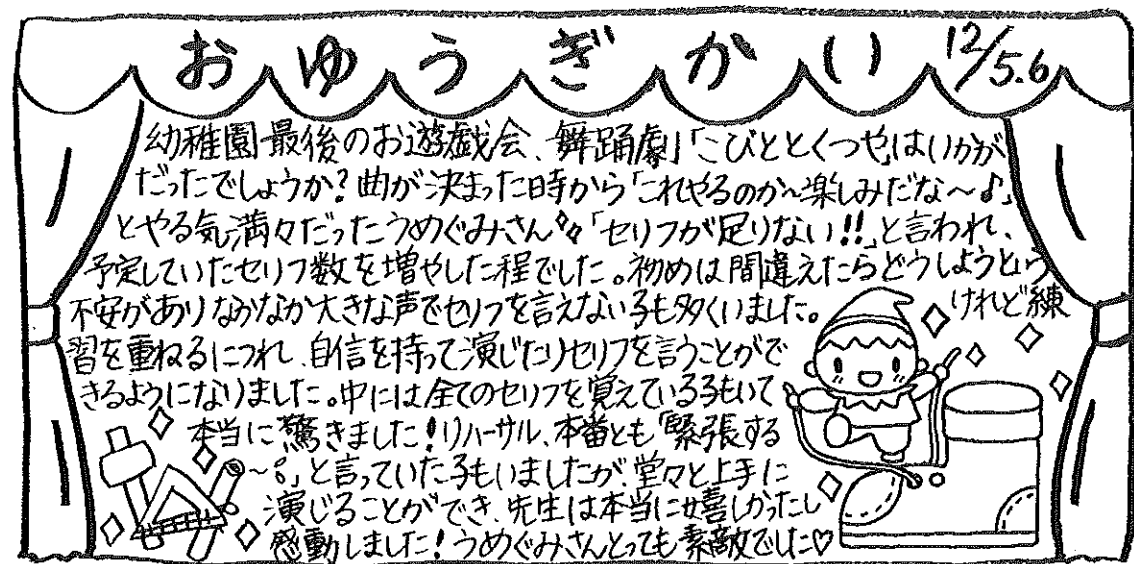 おゆうぎかい 12/5.6
幼稚園最後のお遊戯会、舞踊劇「こびととくつや」はいかが
だったでしょうか？曲が決まった時から「これやるのか〜楽しみだな〜♪」
とやる気満々だったうめぐみさん「セリフが足りない!!」と言われ、
予定していたセリフ数を増やした程でした。初めは間違えたらどうしようという
不安がありなかなか大きな声でセリフを言えない子も多くいました。けれど練
習を重ねるにつれ、自信を持って演じたりセリフを言うことがで
きるようになりました。中には全てのセリフを覚えている子もいて
本当に驚きました！リハーサル、本番とも「緊張する
〜」と言っていた子もいましたが、堂々と上手に
演じることができ、先生は本当に嬉しかったし
感動しました！うめぐみさんとっても素敵でした♡